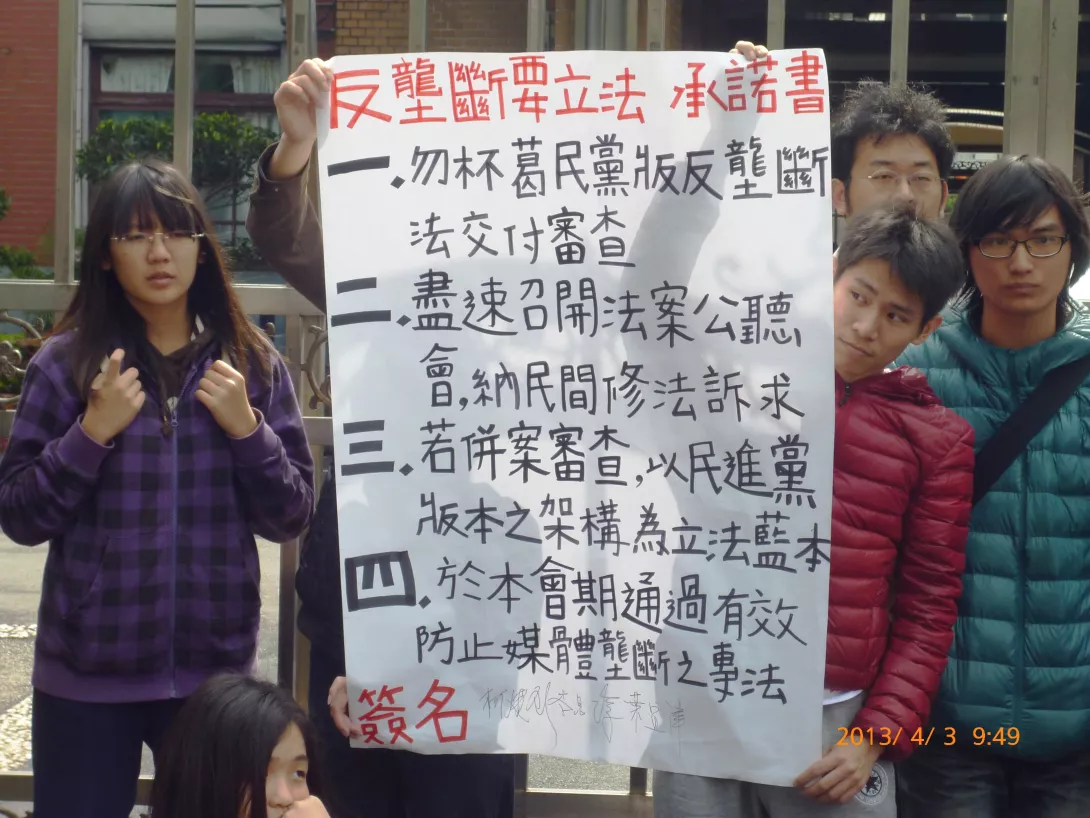 反壟斷要立法 承諾書
一.勿杯葛民黨版反壟斷
法交付審查
二.盡速召開法案公聽
會,納民間修法訴求
三.若併案審查,以民進黨
版本之架構為立法藍本
四.於本會期通過有效
防止媒體壟斷之專法
簽名
2013/ 4/ 3 9:49